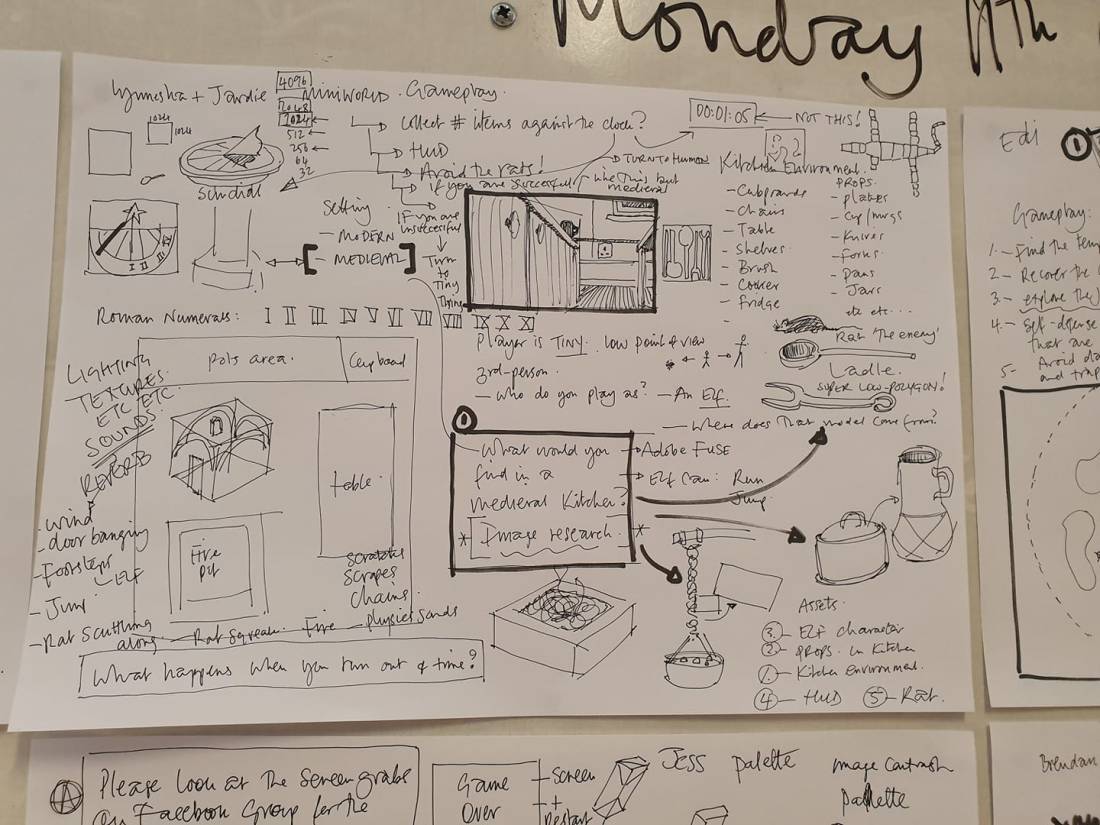 Monday 11th
Lynnesha + Jardie
MiniWORLD. Gameplay.
4096
2048
1024
512
256
64
32
1024
1024
Sundial
Collect # items against the clock?
HUD
Avoid the rats!
If you are successful
TURN TO HUMAN
If you are
Unsuccessful
Turn
to
Tiny
Thing
00:01:05
NOT THIS!
like this but
medieval
Setting
- MODERN
- MEDIEVAL
Kitchen Environment.
- Cupboards
- Chairs
- Table
- Shelves
- Brush
- Cooker
- Fridge
PROPS.
- plates
- Cup/mugs
- Knives
- Forks
- pans
- Jars
etc etc....
Roman Numerals: I II III IV V VI VII VIII IX X XI
I II III
Rat 'The enemy'
Ladle.
SUPER LOW-POLYGON!
Player is TINY. low point of view
3rd-person.
- who do you play as? - An Elf.
- Where does that model come from?
Adobe FUSE
Elf Can: Run
Jump
LIGHTING
TEXTURES.
ETC ETC
SOUNDS.
REVERB
- wind
- door banging
- Footsteps
- ELF
- Jump
- Rat Scuttling
along
- Rat Squeak.
Fire
- physics sounds
Pots area.
Cupboard
table.
Fire
pit
scratches
scrapes
chains.
1
What would you
find in a
medieval Kitchen?
* Image research. *
What happens when you run out of time?
Assets.
3 - Elf character
2 - props in Kitchen
1 - Kitchen Environment.
4 - HUD 5 - Rat.
Edi
1
Gameplay:
1. - Find the
2 - Recover the
3. - explore the
4. - Self-defense
that are
5 - Avoid
and
A
Please look at the screengrabs
on Facebook Group for the
Game
Over
- Screen
+
- Restart
Jess palette
Image
Palette
Brendan